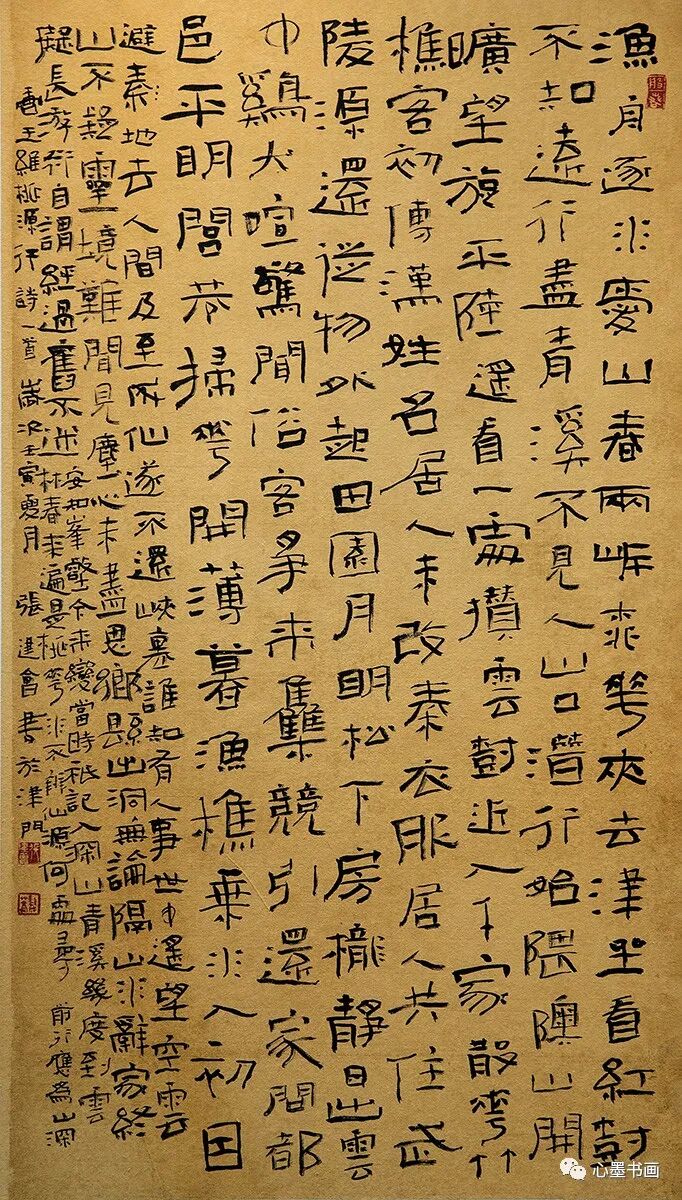 漁舟逐水愛山春兩岸桃花夾去津坐看紅樹
不知遠行盡青溪不見人山口潛行始隈隩山開
曠望旋平陸遙看一處攢雲樹近入千家散花竹
樵客初傳漢姓名居人未改秦衣服居人共住武
陵源還從物外起田園月明松下房櫳靜日出雲
中鷄犬喧驚聞俗客爭來集競引還家問都
邑平明閭巷掃花開薄暮漁樵乘水入初因
避秦地去人間及至成仙遂不還峽裏誰知有人事世中遙望空雲
山不疑靈境難聞見塵心未盡思鄉縣出洞無論隔山水辭家終
擬長游衍自謂經過舊不迷安知峯壑今來變當時秖記入深山青溪幾度到雲
林春來遍是桃花水不辨仙源何處尋
前行應為山深
王維桃源行詩一首歲次壬寅夏月張進會書於津門
心墨书画